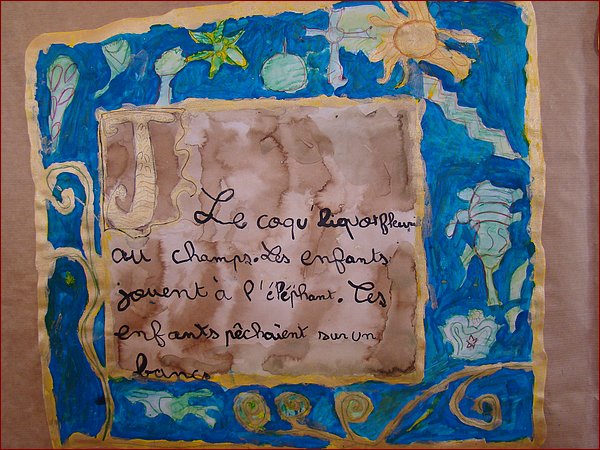 J
Le coqu'liquotfleuri
au champs. Les enfants
jouent à l'éléphant. Les
enfants pêchaient sur un
bancs